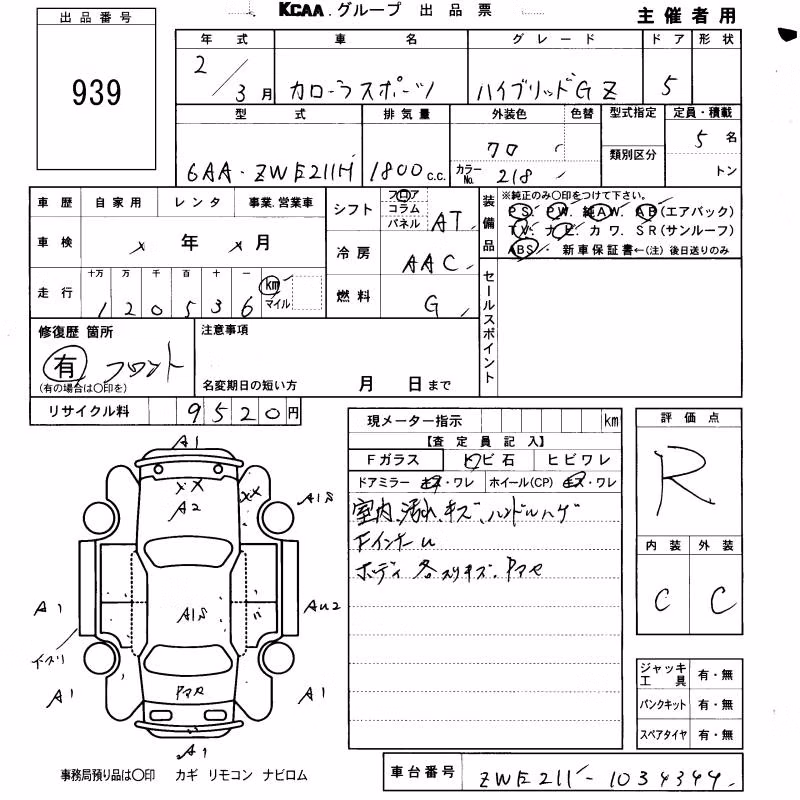 KCAA.グループ 出品票
主催者用
出品番号
939
年式 車名 グレード ドア 形状
2/3月 カローラスポーツ ハイブリッドGZ 5
型式 排気量 外装色 色替 型式指定 定員・積載
6AA-ZWE211H 1800c.c. クロ 5名
カラーNo. 218 類別区分 トン
車歴 自家用 レンタ 事業.営業車
車検 x年x月
走行 十万 万 千 百 十 一
120536 km マイル
シフト フロア コラム パネル AT
冷房 AAC
燃料 G
装備品 ※純正のみ〇印をつけて下さい。
PS. PW. 純AW. AB(エアバック)
TV. ナビ. カワ. SR(サンルーフ)
ABS. 新車保証書←(注)後日送りのみ
セールスポイント
修復歴 箇所
有 フロント
(有の場合は〇印を)
注意事項
名変期日の短い方 月 日まで
リサイクル料 9520円
現メーター指示 km
【査定員記入】
Fガラス トビ石 ヒビワレ
ドアミラー キズ・ワレ ホイール(CP) キズ・ワレ
室内、汚れ、キズ、ハンドルハゲ
Fインナーレ
ボディ各スリキズ.アマセ
評価点
R
内装 外装
C C
ジャッキ工具 有・無
パンクキット 有・無
スペアタイヤ 有・無
A1
xx xx
A2 A1S
A1 A1S AU2
イスリ
A1 アマセ A1
A1
事務局預り品は〇印 カギ リモコン ナビロム
車台番号 ZWE211-1034344